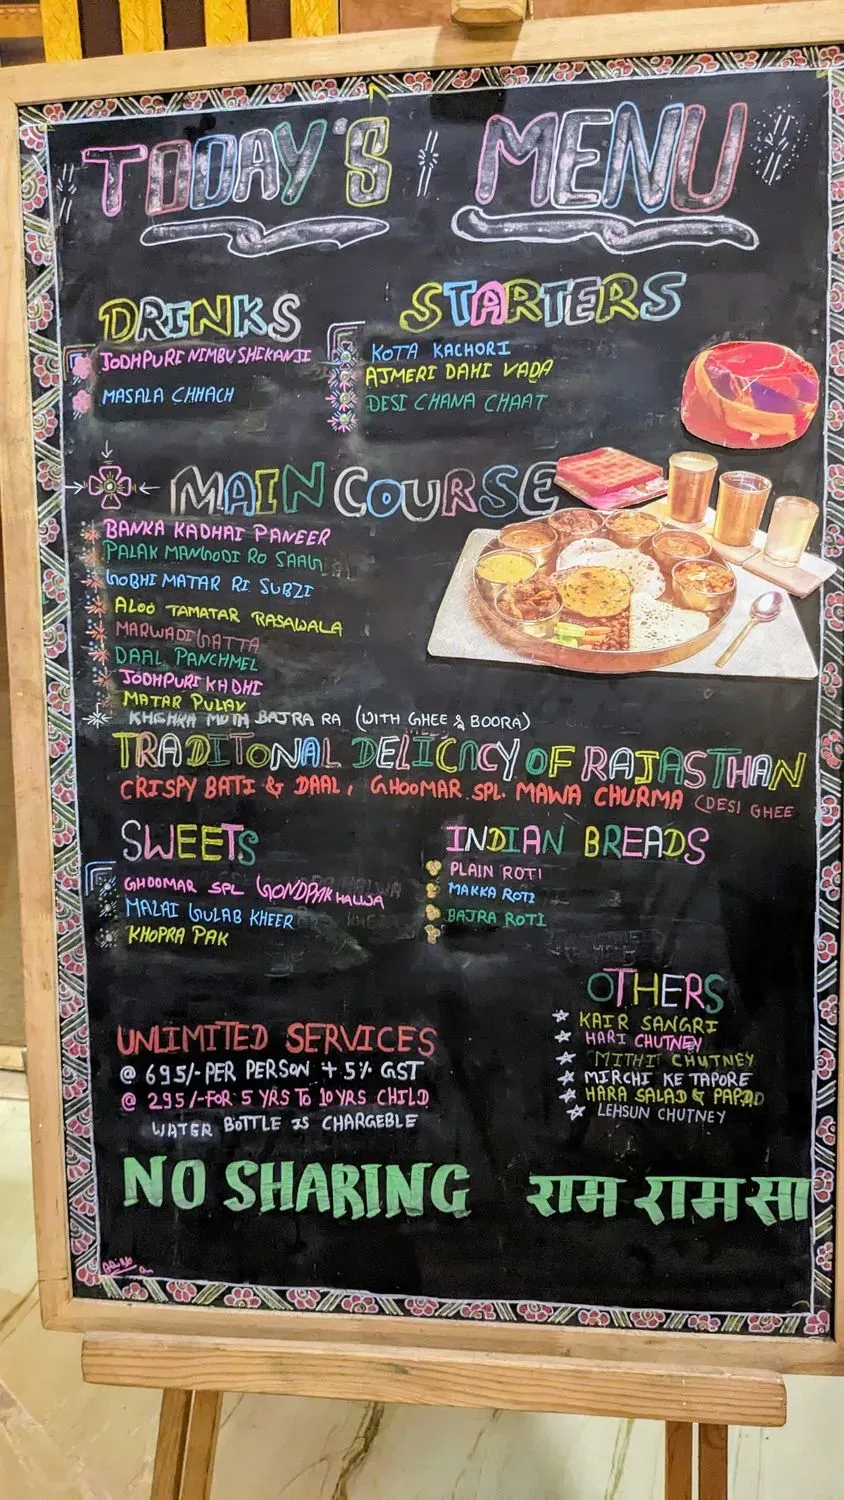 TODAY'S MENU
DRINKS
JODHPURI NIMBU SHIKANJI
MASALA CHHACH
STARTERS
KOTA KACHORI
AJMERI DAHI VADA
DESI CHANA CHAAT
MAIN COURSE
BANKA KADHAI PANEER
PALAK MANGODI RO SAAG
GOBHI MATAR RI SUBZI
ALOO TAMATAR RASAWALA
MARWADI GATTA
DAAL PANCHMEL
JODHPURI KADHI
MATAR PULAV
BAJRA RA (WITH GHEE & BOORA)
TRADITONAL DELICACY OF RAJASTHAN
CRISPY BATI & DAAL, GHOOMAR SPL. MAWA CHURMA (DESI GHEE
SWEETS
GHOOMAR SPL GONDPAK HALWA
MALAI GULAB KHEER
KHOPRA PAK
INDIAN BREADS
PLAIN ROTI
MAKKA ROTI
BAJRA ROTI
OTHERS
KAIR SANGRI
HARI CHUTNEY
MITHI CHUTNEY
MIRCHI KE TAPORE
HARA SALAD & PAPAD
LEHSUN CHUTNEY
UNLIMITED SERVICES
@ 695/- PER PERSON + 5% GST
@ 295/- FOR 5 YRS TO 10 YRS CHILD
WATER BOTTLE IS CHARGEBLE
NO SHARING
राम राम सा